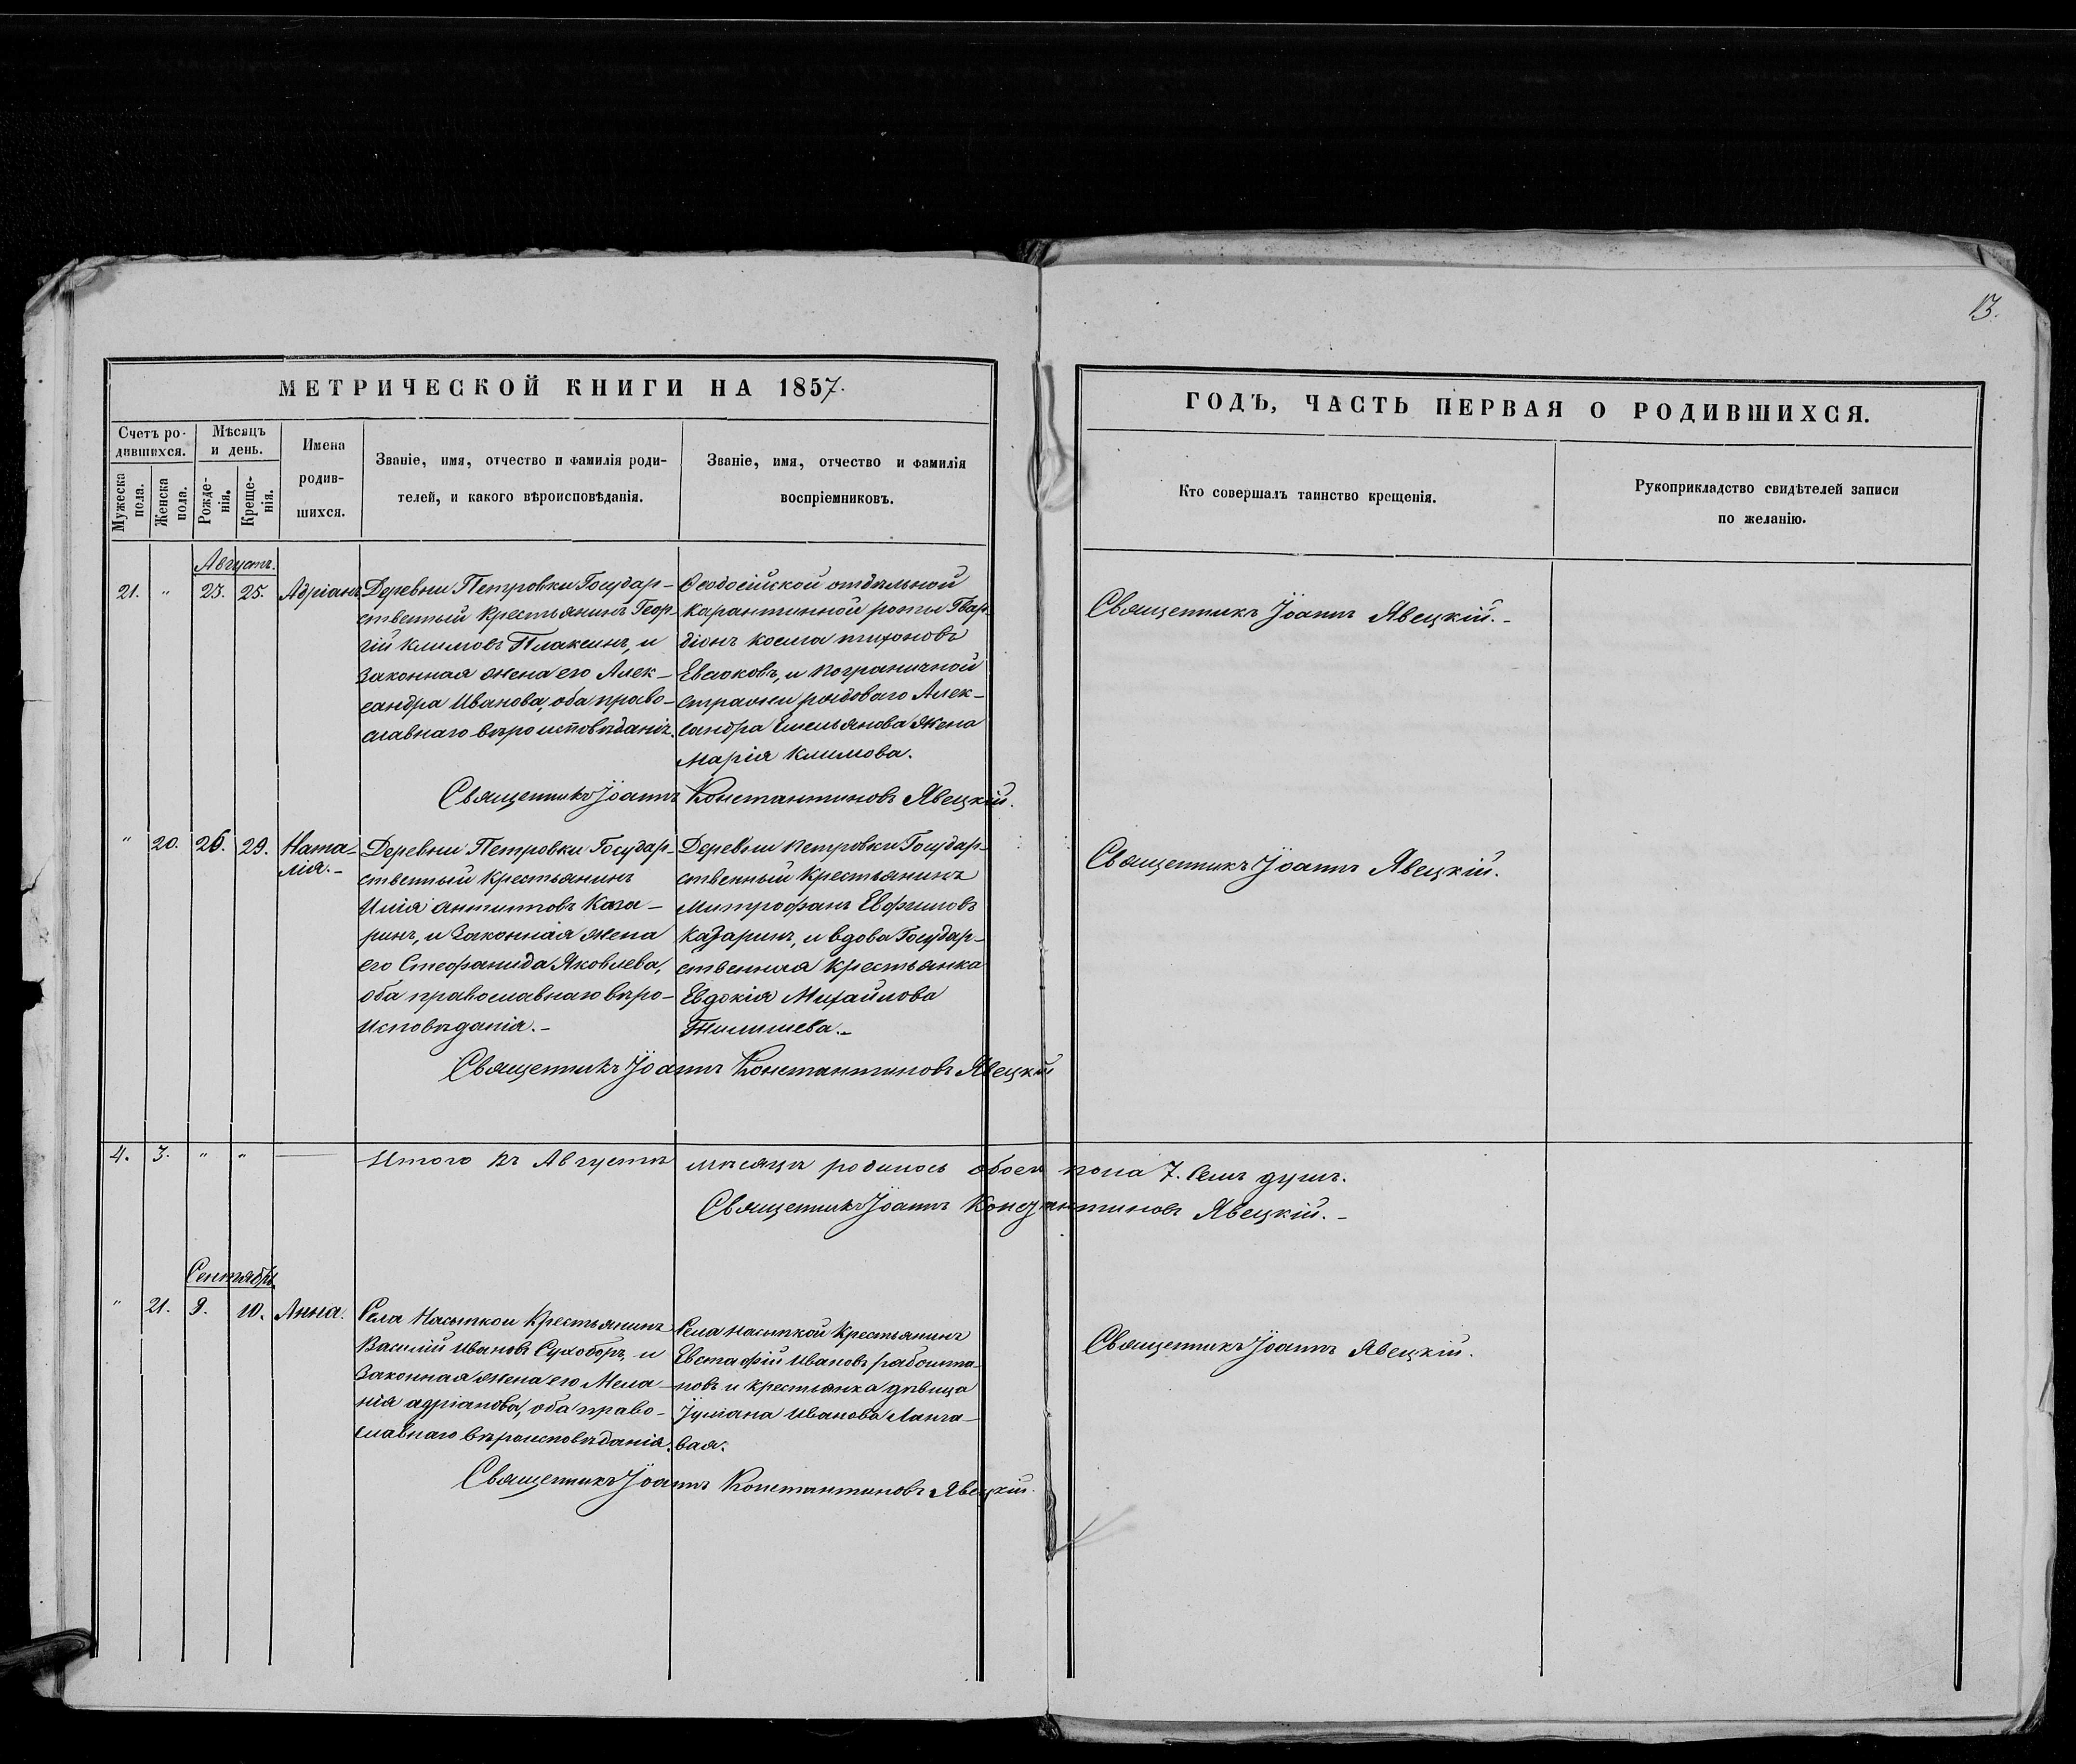 13.
МЕТРИЧЕСКОЙ КНИГИ НА 1857.
Счетъ ро-
дившихся.
Мужеска пола.
Женска пола.
Мѣсяцъ
и день.
Рожде-
нія.
Креще-
нія.
Имена
родив-
шихся.
Званіе, имя, отчество и фамилія роди-
телей, и какого вѣроисповѣданія.
Званіе, имя, отчество и фамилія
воспріемниковъ.
ГОДЪ, ЧАСТЬ ПЕРВАЯ О РОДИВШИХСЯ.
Кто совершалъ таинство крещенія.
Рукоприкладство свидѣтелей записи
по желанію.
Августъ.
21. " 25. 25. Адріанъ
Деревни Петровки Государ-
ственный Крестьянинъ Геор-
гій Климовъ Плаксинъ, и
Законная жена его Алек-
сандра Иванова, оба право-
славнаго вѣроисповѣданія.
Ѳеодосійской отдѣльной
карантинной роты Гвар-
діонъ Косма тихоновъ
Евсюковъ, и пограничной
стражи рядоваго Алек-
сандра Емельянова Жена
Марія Климова.
Священникъ Іоаннъ Константиновъ Явецкій.
Священникъ Іоаннъ Явецкій.-
" 20. 26. 29. Ната-
лія.-
Деревни Петровки Государ-
ственный Крестьянинъ
Илія антиповъ Каза-
ринъ, и Законная жена
его Стефанида Яковлева,
оба православнаго вѣро-
исповѣданія.-
Деревни Петровки Государ-
ственный Крестьянинъ
Митрофанъ Евфимовъ
Казаринъ, и вдова Государ-
ственная Крестьянка
Евдокія Михайлова
Священникъ Іоаннъ Константиновъ Явецкій
Священникъ Іоаннъ Явецкій.
4. 3. " " Итого въ Августѣ мѣсяцѣ родилось обоего пола 7. Семь душъ.
Священникъ Іоаннъ Константиновъ Явецкій.-
Сентябрь
" 21. 9. 10. Анна.
Села Насыпкои Крестьянинъ
Василій Ивановъ Сухоборъ, и
Законная жена его Мела-
нія адріанова, оба право-
славнаго вѣроисповѣданія.
Села Насыпкой Крестьянинъ
Евстафій Ивановъ
и крестьянка дѣвица
Іуліана Иванова
вая.
Священникъ Іоаннъ Константиновъ Явецкій.
Священникъ Іоаннъ Явецкій.